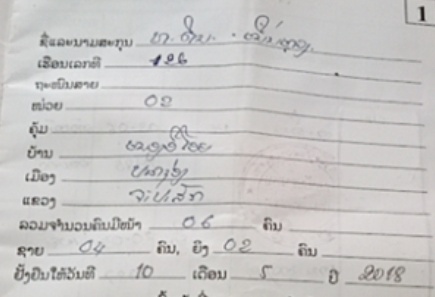 1
ຊື່ແລະນາມສະກຸນ ທ.
ເຮືອນເລກທີ 126
ຖະໜົນສາຍ
ໜ່ວຍ 02
ຄຸ້ມ
ບ້ານ
ເມືອງ
ແຂວງ ຈຳປາສັກ
ລວມຈຳນວນຄົນມີໜ້າ 06 ຄົນ
ຊາຍ 04 ຄົນ, ຍິງ 02 ຄົນ
ຢັ້ງຢືນໃຫ້ວັນທີ 10 ເດືອນ 5 ປີ 2018